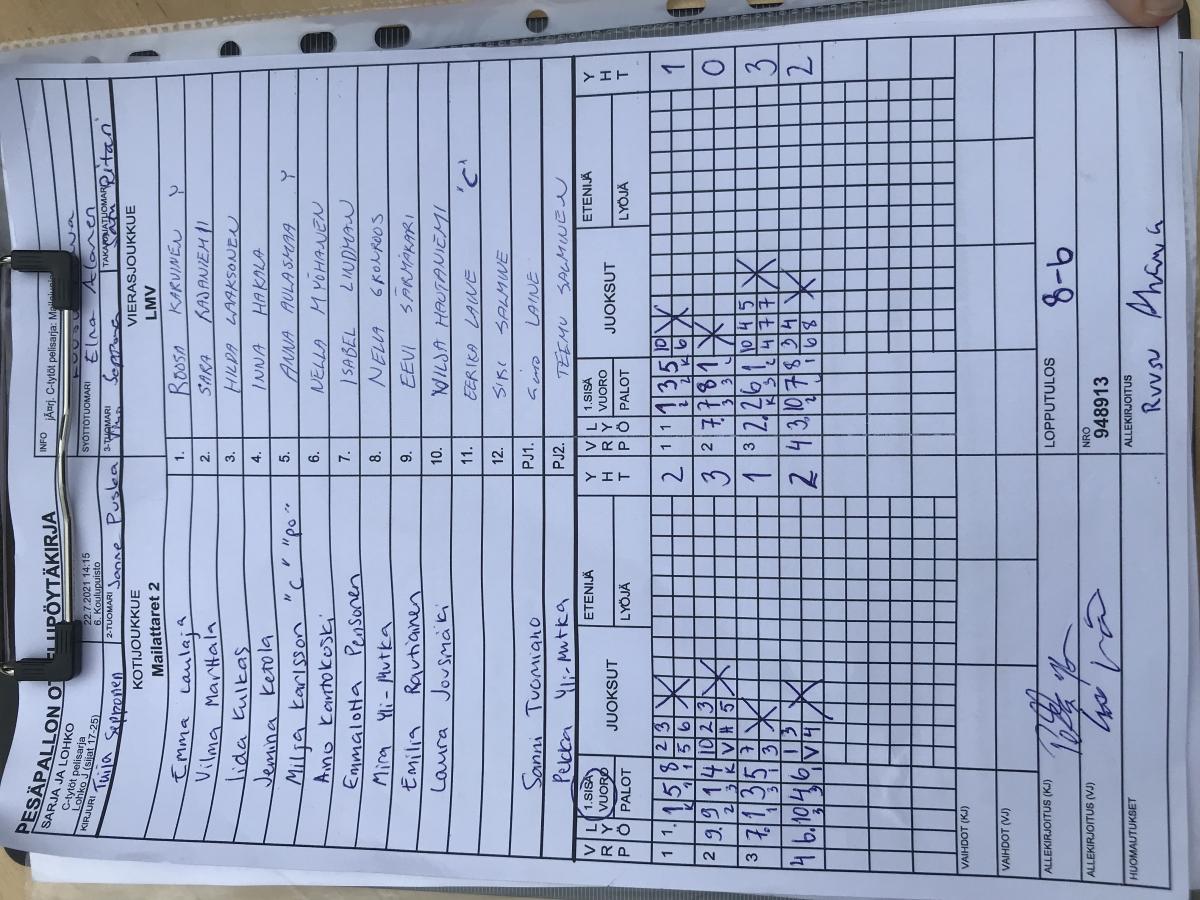 PESÄPALLON OT ELUPÖYTÄKIRJA
SARJA JA LOHKO
C-tytöt pelisarja
Lohko J (sijat 17-25)
22.7.2021 14:15
6. Koulupuisto
INFO
C-tytöt pelisarja:
KIRJURI
2-TUOMARI Janne Puska
SYÖTTÖTUOMARI
3-TUOMARI
TAKARAJATUOMARI
KOTIJOUKKUE
Mailattaret 2
VIERASJOUKKUE
LMV
Emma Laulaja 1. ROOSA KARVINEN Y
Vilma Marttala 2. SARA RAJANIEMI
Iida Kulkas 3. HILDA LAAKSONEN
Jemina Kerola 4. INNA HAKALA
Milja Karlsson "C" "po" 5. ANNA AULASMAA Y
Amo Kantokoski 6. NELLA MYÖHÄNEN
Emmalotta Pensonen 7. ISABEL LINDMAN
Mira Yli-Mutka 8. NELLA GRÖNROOS
Emilia Rautiainen 9. EEVI SÄRMÄKARI
Laura Jousmäki 10. MILJA HAUTANIEMI
11. EERIKA LAINE 'C'
12. SALMINE
Sanni Tuomiaho PJ1. LAINE
Pekka Yli-Mutka PJ2. TEEMU SALMINEN
V R L Y P Ö 1.SISÄ VUORO PALOT JUOKSUT ETENIJÄ LYÖJÄ Y H T V R L Y P Ö 1.SISÄ VUORO PALOT JUOKSUT ETENIJÄ LYÖJÄ Y H T
1 1. 1 5 8 2 3 2 1 1 1 3 5 10 1
K 1 1 5 6 2 2 K 6
2 9. 9 1 4 10 2 3 3 2 7. 7 8 1 0
2 3 K V H 5 3 3 L
3 7. 1 3 5 7 1 3 2. 2 6 1 10 4 5 3
1 3 1 3 K 3 L 4 7 7
4 6. 10 4 6 1 3 2 4 3. 10 7 8 3 4 2
3 3 1 V 4 2 L 1 6 8
VAIHDOT (KJ)
VAIHDOT (VJ)
ALLEKIRJOITUS (KJ)
LOPPUTULOS 8-6
ALLEKIRJOITUS (VJ)
NRO
948913
HUOMAUTUKSET
ALLEKIRJOITUS